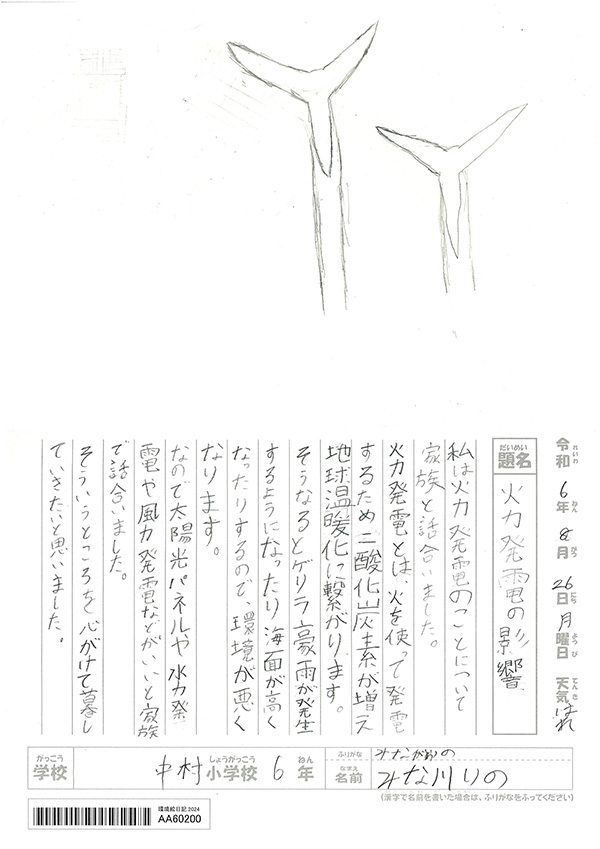 令和6年8月26日月曜日 天気はれ
れいわ ねん がつ にち ようび てんき
だいめい
題名 火力発電の影響
私は火力発電のことについて
家族と話合いました。
火力発電とは、火を使って発電
するため二酸化炭素が増え
地球温暖化に繋がります。
そうなるとゲリラ豪雨が発生
するようになったり海面が高く
なったりするので、環境が悪く
なります。
なので太陽光パネルや水力発
電や風力発電などがいいと家族
で話合いました。
そういうところを心がけて暮し
ていきたいと思いました。
がっこう しょうがっこう ねん
学校 中村小学校 6年
ふりがな みながわりの
なまえ
名前 みな川りの
(漢字で名前を書いた場合は、ふりがなをふってください)
環境絵日記 2024
AA60200